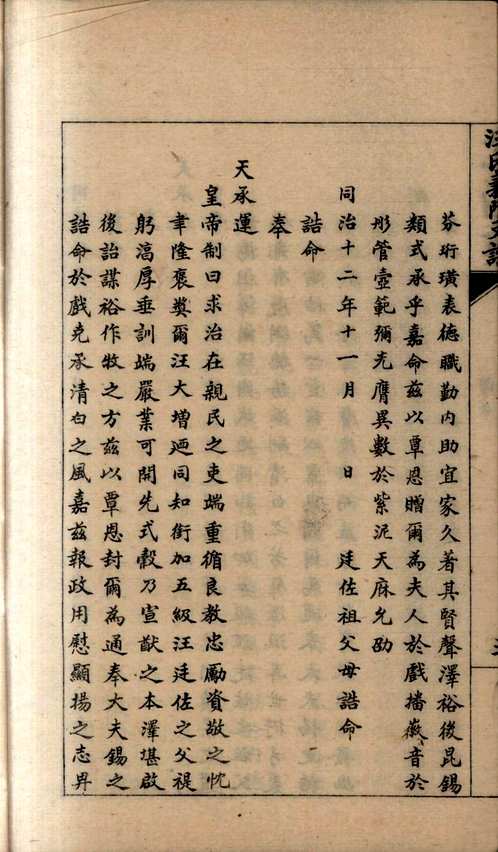 芬珩璜表德職勤內助宜家久著其賢聲澤裕後昆錫
類式承乎嘉命茲以覃恩贈爾為夫人於戲播徽音於
彤管壼範彌光膺異數於紫泥天庥允劭
同治十二年十一月 日 廷佐祖父母誥命
誥命
奉
天承運
皇帝制曰求治在親民之吏端重循良教忠勵資敬之忱
聿隆褒奬爾汪大增迺同知銜加五級汪廷佐之父禔
躬淳厚垂訓端嚴業可開先式穀乃宣猷之本澤堪啟
後詒謀裕作牧之方茲以覃恩封爾為通奉大夫錫之
誥命於戲克承清白之風嘉茲報政用慰顯揚之志畀